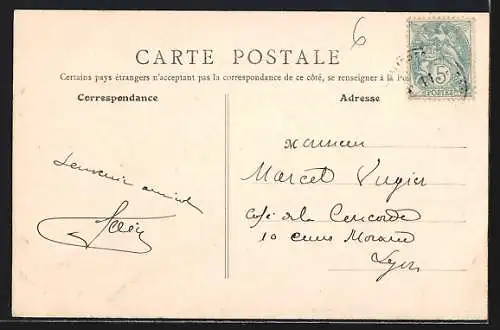 6
CARTE POSTALE
Certains pays étrangers n'acceptant pas la correspondance de ce côté, se renseigner à la Po
Correspondance
Adresse
Souvenir amical
Monsieur
Marcel Vugier
Café de la Concorde
10 cours Morand
Lyon
5c
POSTES